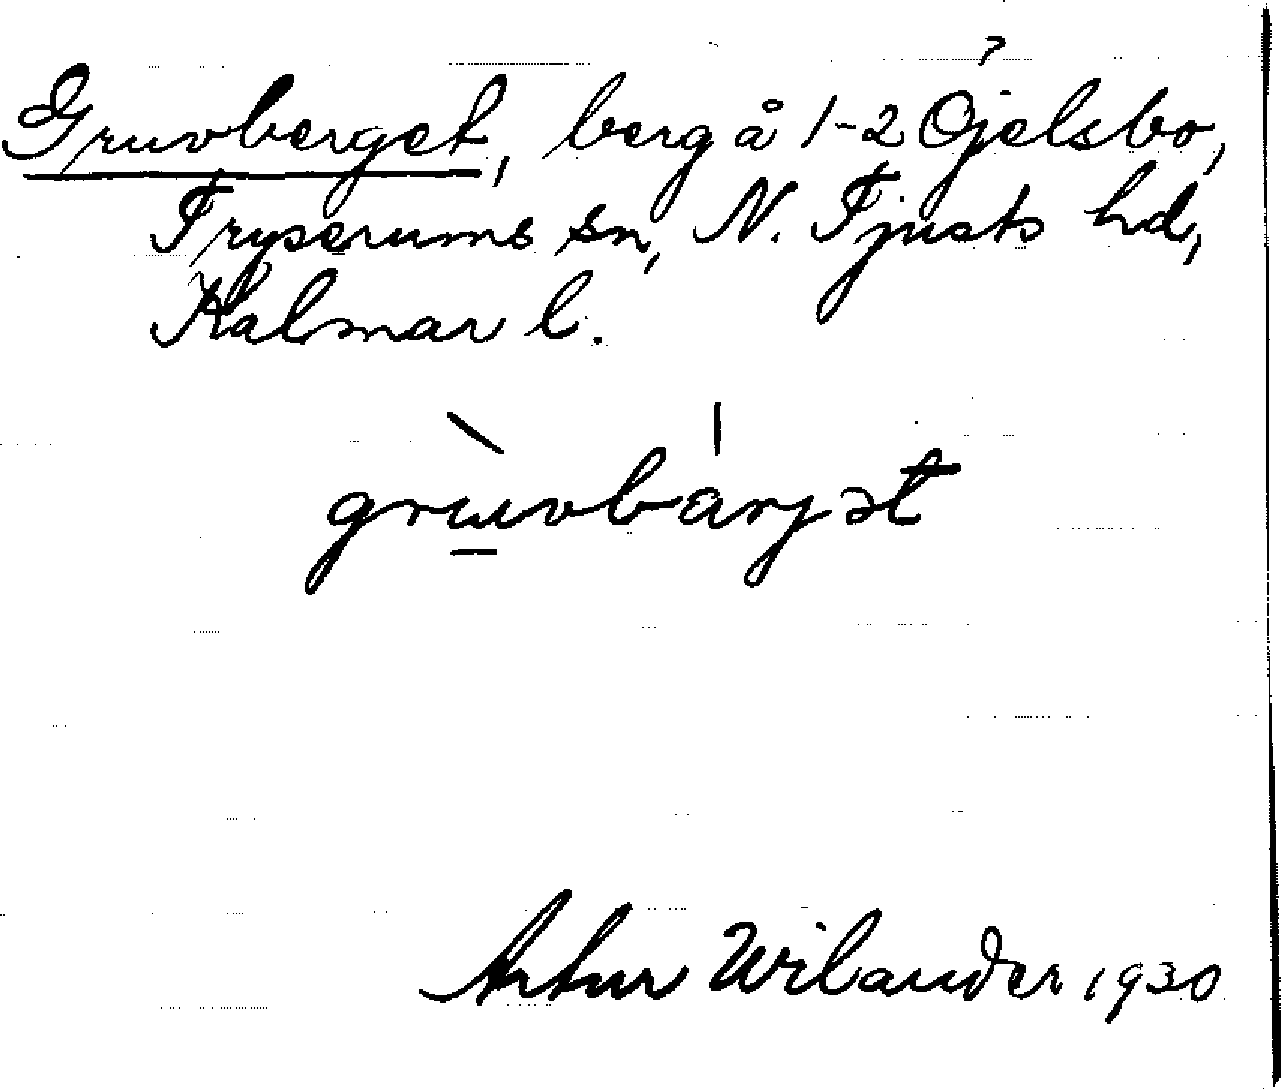 Gruvberget, berg å 1-2 Öjelsbo,
Tryserums sn, N. Tjusts hd,
Kalmar l.
grùvbarjət
Artur Wilander 1930